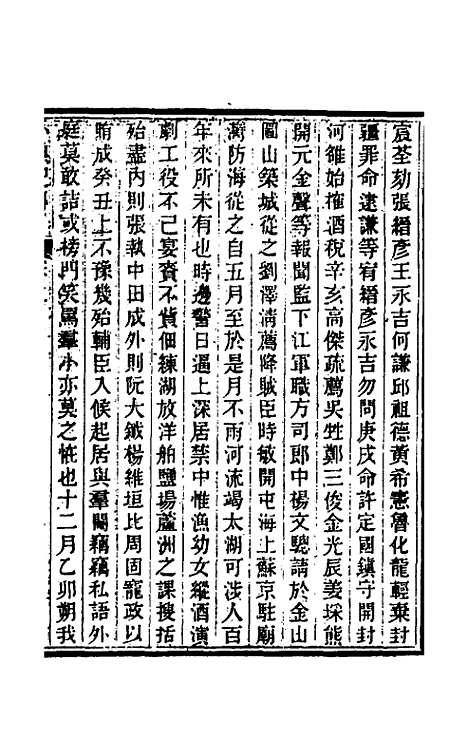 宸荃劾張縉彥王永吉何謙邱祖德黃希憲魯化龍輕棄封
疆罪命逮謙等宥縉彥永吉勿問庚戌命許定國鎮守開封
河雒始榷酒稅辛亥高傑疏薦吳甡鄭三俊金光辰姜埰熊
開元金聲等報聞監下江軍職方司郎中楊文驄請於金山
圌山築城從之劉澤清薦降賊臣時敏開屯海上蘇京駐廟
灣防海從之自五月至於是月不雨河流竭太湖可涉人百
年來所未有也時邊警日逼上深居禁中惟漁幼女縱酒演
劇工役不已宴賚不貲佃練湖放洋舶鹽場蘆洲之課搜括
殆盡內則張執中田成外則阮大鋮楊維垣比周固寵政以
賄成癸丑上不豫幾殆輔臣入候起居與羣閹竊竊私語外
庭莫敢詰或榜門笑罵羣小亦莫之恠也十二月乙卯朔我